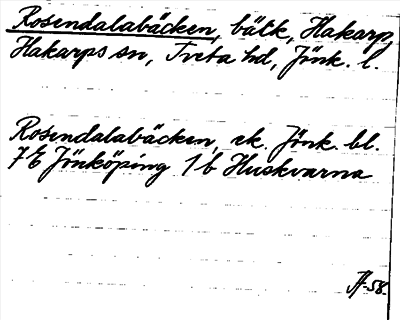 Rosendalabäcken, bäck, Hakarp,
Hakarps sn, Tveta hd, Jönk. l.
Rosendalabäcken, ek. Jönk. bl.
7 E Jönköping 1 b Huskvarna
-58.